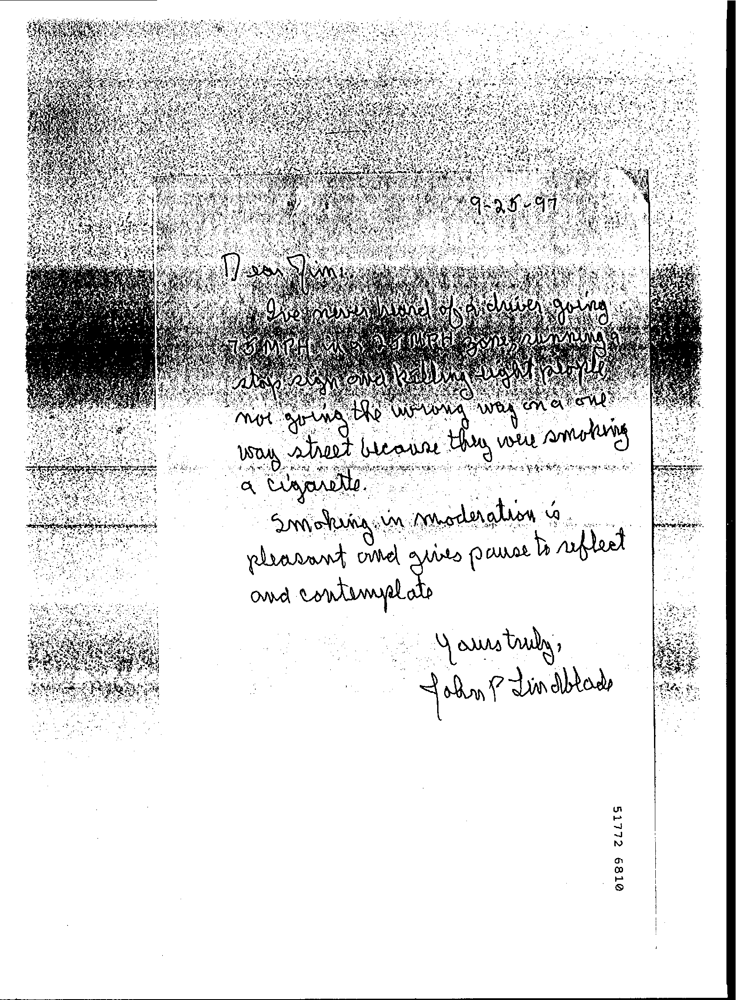 9-25-97
Dear Jim:
I've never heard of a driver going
75 MPH in a 25 MPH zone, running a
stop sign and killing eight people
nor going the wrong way on a one
way street because they were smoking
a cigarette.
Smoking in moderation is
pleasant and gives pause to reflect
and contemplate
Yours truly,
John P Lindblade
51772 6810